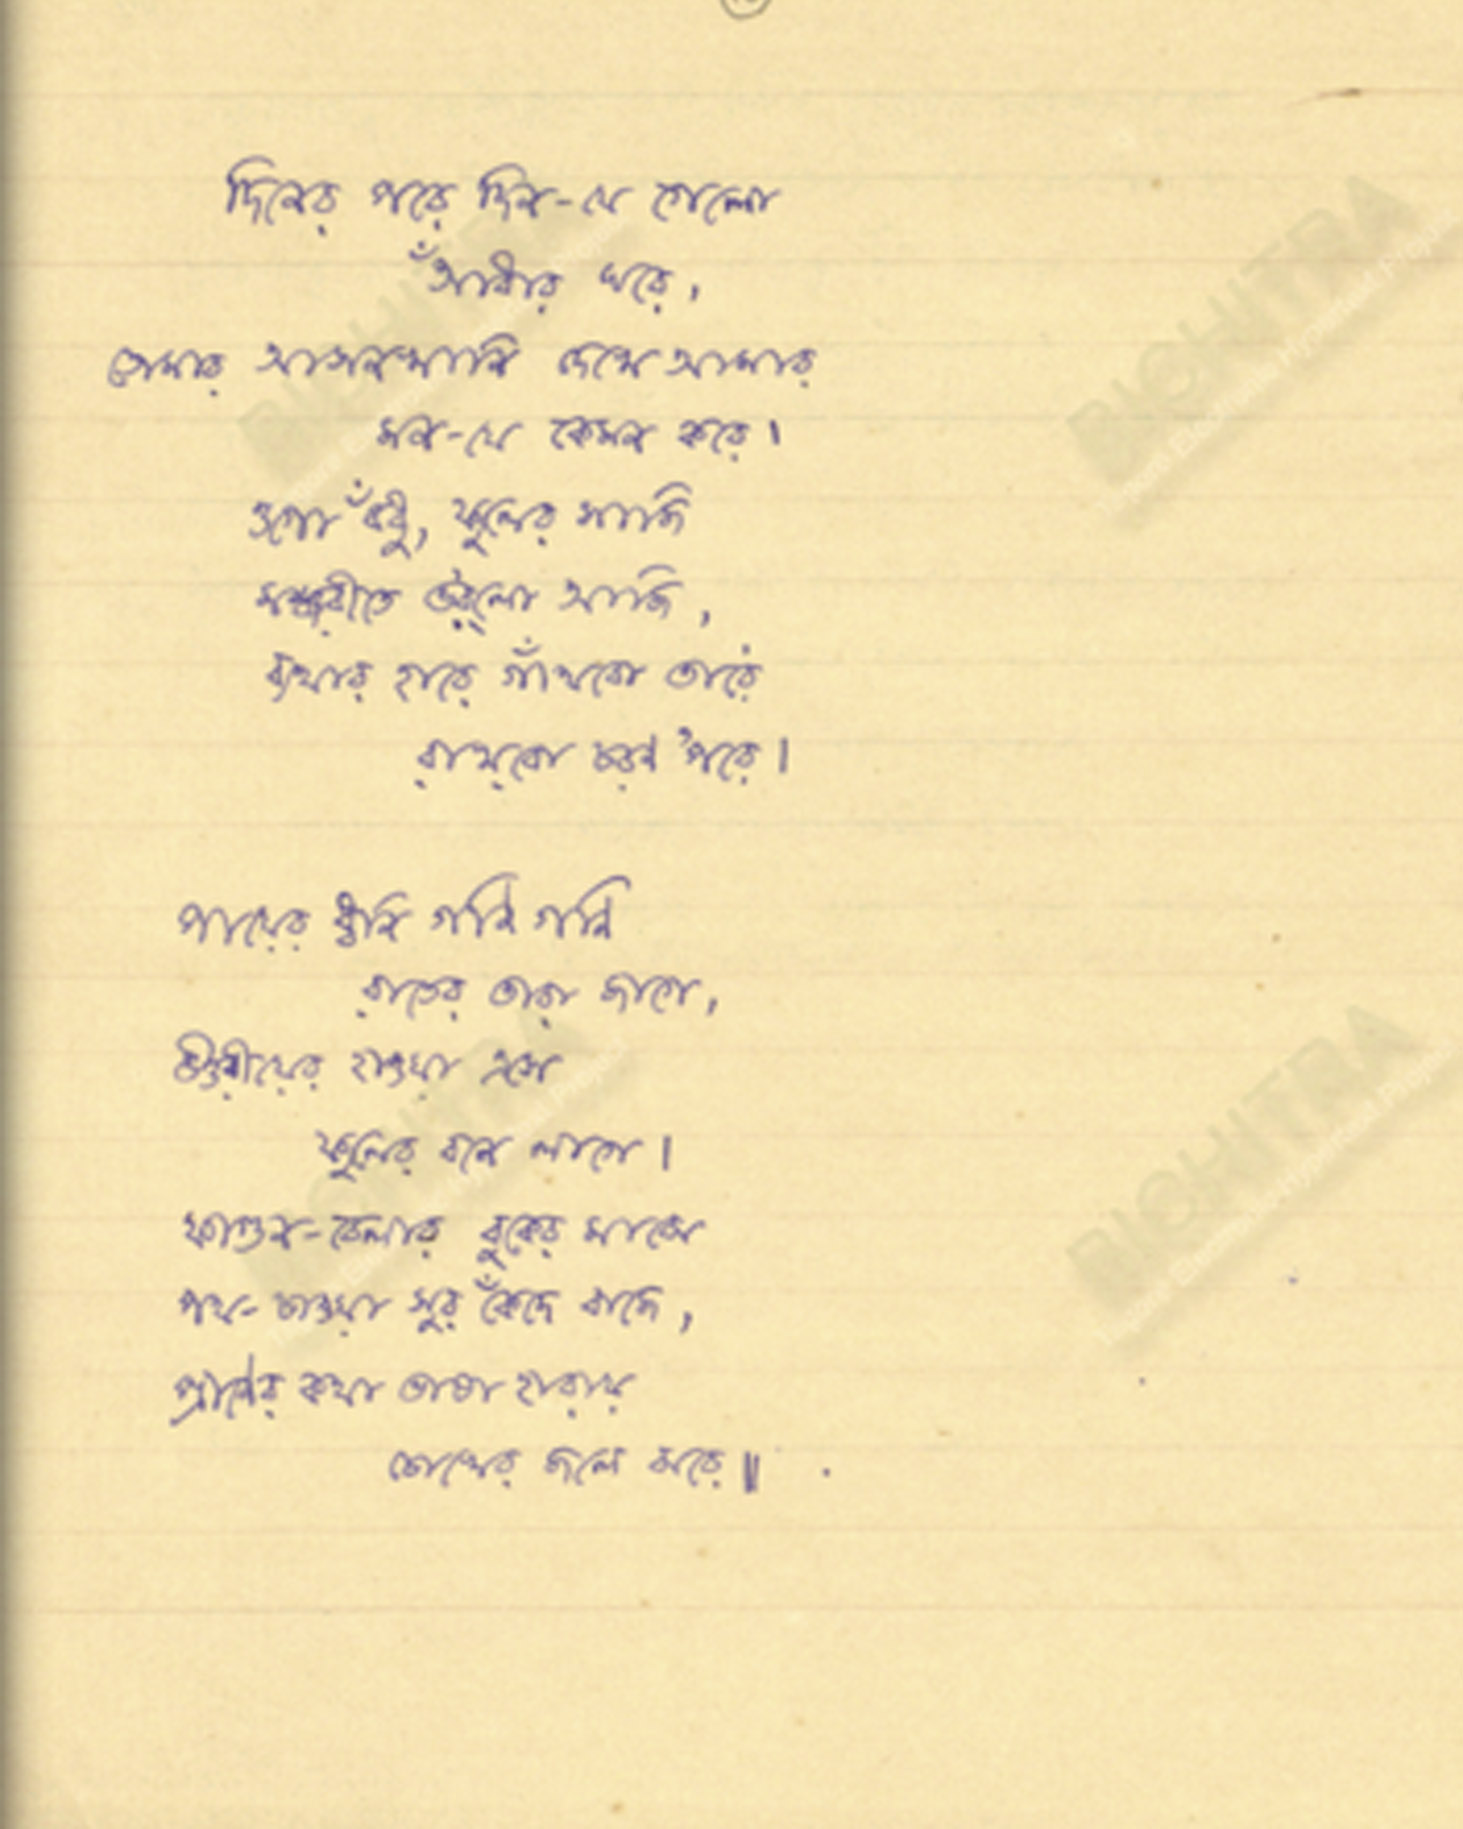 দিনের পরে দিন-যে গেলো
আঁধার ঘরে,
তোমার আসনখানি দেখে আমার
মন-যে কেমন করে।
ওগো বঁধু, ফুলের সাজি
মঞ্জরীতে ভর্‌লো আজি,
ব্যথার হারে গাঁথবো তারে
রাখ্‌বো চরণ 'পরে।
পায়ের ধ্বনি গণি গণি
রাতের তারা জাগে,
উত্তরীয়ের হাওয়া এসে
ফুলের বনে লাগে।
ফাগুন-বেলার বুকের মাঝে
পথ-চাওয়া সুর কেঁদে বাজে,
প্রাণের কথা ভাষা হারায়
চোখের জলে ঝরে॥
BICHITRA
BICHITRA
BICHITRA
BICHITRA